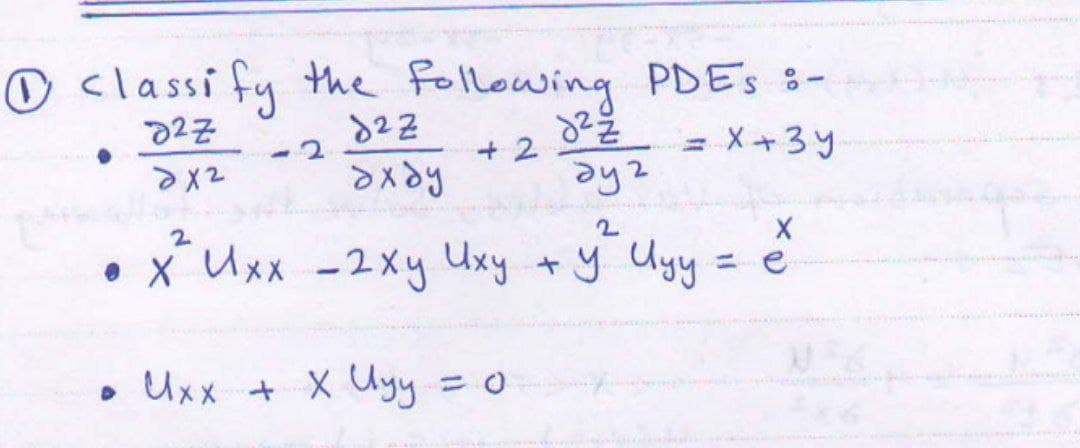 ① classify the following PDEs :-
• ∂²z/∂x² - 2 ∂²z/∂x∂y + 2 ∂²z/∂y² = x + 3y
• x² Uxx - 2xy Uxy + y² Uyy = eˣ
• Uxx + x Uyy = 0